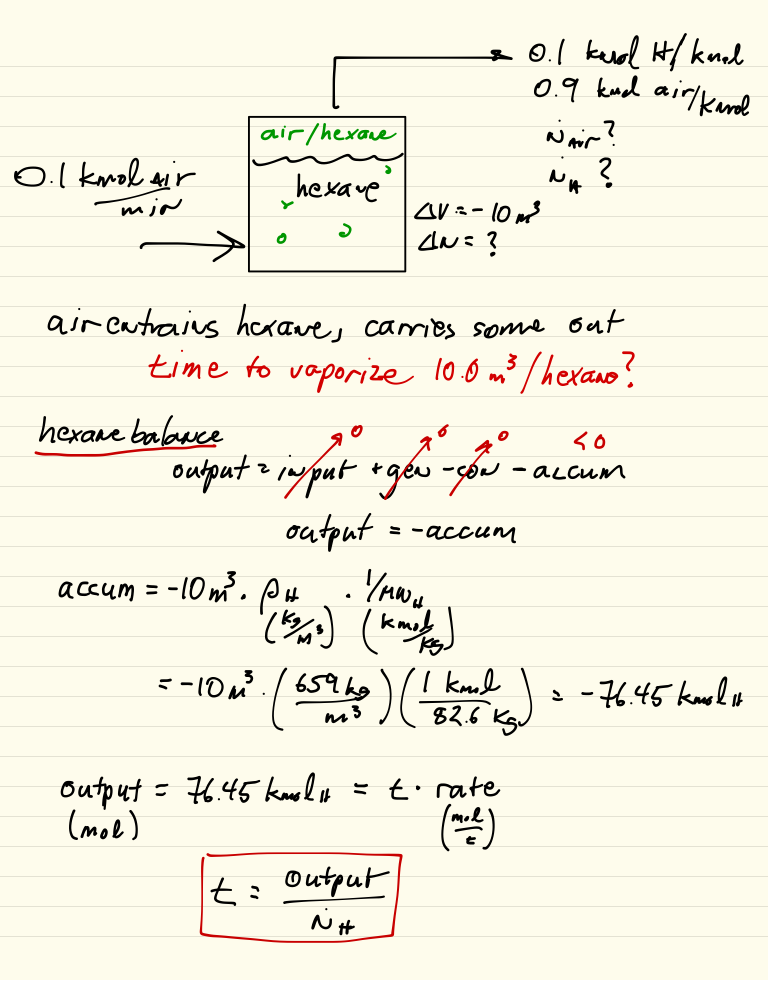 0.1 kmol H/kmol
0.9 kmol air/kmol
ṅ_Air?
ṅ_H ?
air/hexane
hexane
0.1 kmol air/min
ΔV = -10 m³
ΔN = ?
air entrains hexane, carries some out
time to vaporize 10.0 m³/hexane?
hexane balance
0 0 0 <0
output = input + gen - con - accum
output = -accum
accum = -10 m³ · ρ_H (kg/m³) · 1/MW_H (kmol/kg)
= -10 m³ · (659 kg/m³)(1 kmol/82.6 kg) = -76.45 kmol_H
output = 76.45 kmol_H = t · rate
(mol) (mol/t)
t = output/ṅ_H